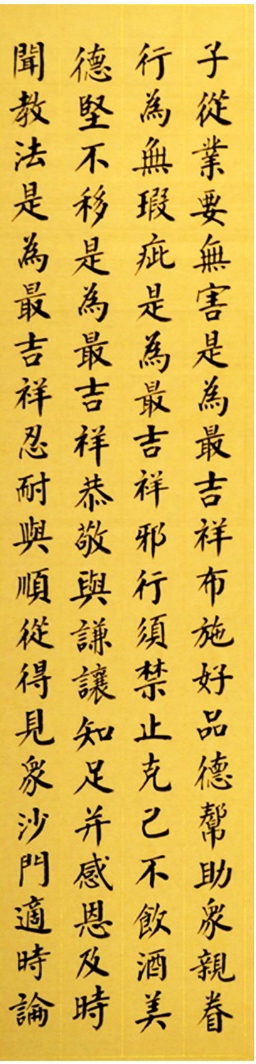 子從業要無害是為最吉祥布施好品德幫助眾親眷
行為無瑕疵是為最吉祥邪行須禁止克己不飲酒美
德堅不移是為最吉祥恭敬與謙讓知足并感恩及時
聞教法是為最吉祥忍耐與順從得見眾沙門適時論